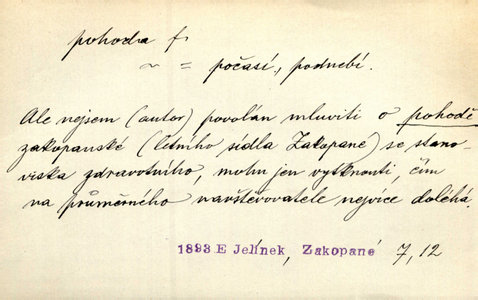 pohoda f.
~ = počasí, podnebí.
Ale nejsem (autor) povolán mluviti o pohodě
zakopanské (letního sídla Zakopané) se stano-
viska zdravotního, mohu jen vytknouti, čím
na průměrného navštěvovatele nejvíce doléhá.
1893 E Jelínek, Zakopané 7, 12